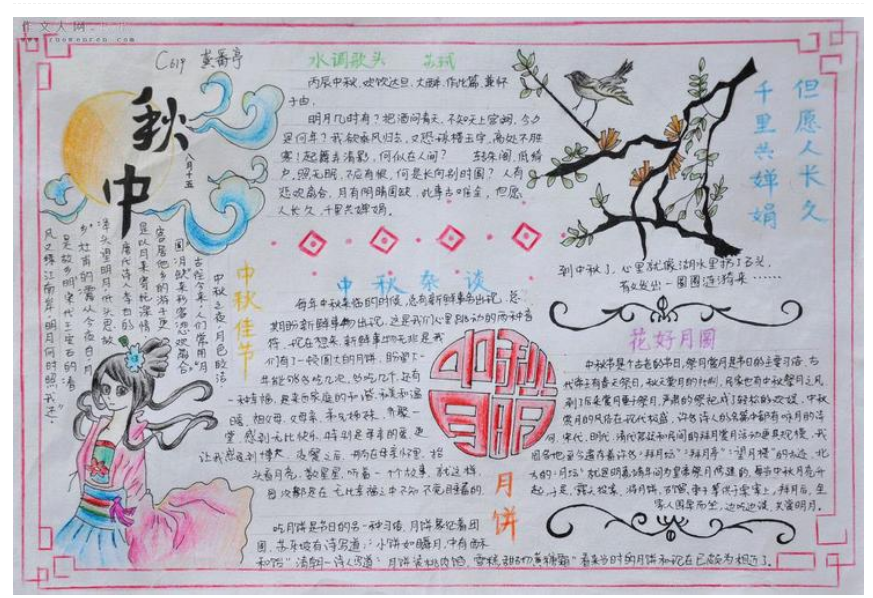 作文人网
C614 黄番亭
中秋
八月十五
水调歌头 苏轼
丙辰中秋，欢饮达旦，大醉，作此篇，兼怀
子由，
明月几时有？把酒问青天，不知天上宫阙，今夕
是何年？我欲乘风归去，又恐琼楼玉宇，高处不胜
寒！起舞弄清影，何似在人间？ 转朱阁，低绮
户，照无眠，不应有恨，何是长向别时圆？人有
悲欢离合，月有阴晴圆缺，此事古难全，但愿
人长久，千里共婵娟。
但愿人长久
千里共婵娟
到中秋了，心里就像湖水里扔了石头，
有效发出一圈圈涟漪来……
中秋佳节
中秋之夜，月色皎洁
古往今来，人们常用“月
圆、月缺”来形容“悲欢离合”
客居他乡的游子更
是以月来寄托深情
唐代诗人李白的
举头望明月，低头思故
乡”杜甫的“露从今夜白，月
是故乡明”宋代王安石的“春
风又绿江南岸，明月何时照我还”
中秋杂谈
每年中秋来临的时候，总有新鲜事物出现，总
期盼新鲜事物出现，这是我们心里跳动的两种音
符，现在想来，新鲜事物无非是我
们有了一顿圆大的月饼，盼望了一
年能够多吃几次，多吃几个，还有
一种情感，是来自家庭的和谐、和美和温
暖，祖父母、父母亲、弟兄姊妹，齐聚一
堂，感到无比快乐，特别是母亲的爱，更
让我感受到博大，晚餐之后，躺在母亲怀里，抬
头看月亮，数星星，听着一个故事，就这样，
每次都是在无比幸福之中不知不觉睡着的。
中秋月明
月饼
吃月饼是节日的另一种习俗，月饼象征着团
圆，苏东坡有诗写道：“小饼如嚼月，中有酥
和饴”清朝一诗人写道：“月饼裹桃肉馅，雪糕甜切蔗糖霜”看来当时的月饼和现在已颇为相近了。
花好月圆
中秋节是个古老的节日，祭月赏月是节日的主要习俗、古
代帝王有春天祭日，秋天祭月的社制，民家也有中秋祭月之风，
到了后来赏月重于祭月，严肃的祭祀成了轻松的欢娱，中秋
赏月的风俗在现代极盛，许多诗人的名篇中都有咏月的诗
句，宋代、明代、清代宫廷和民间的拜月赏月活动更具规模，我
国各地至今遗存着许多“拜月坛”“拜月亭”“望月楼”的古迹，北
京的“月坛”就是明嘉靖年间为皇家祭月修建的，每当中秋月亮升
起，于是，露天设案，将月饼、石榴、枣子等供于桌案上，拜月后，全
家人围桌而坐，边吃边谈，共赏明月。